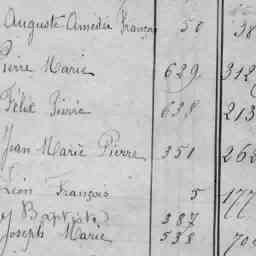 Auguste Amedée François 50 38
Pierre Marie 629 312
Félix Pierre 638 213
Jean Marie Pierre 351 262
Léon François 5 177
Baptiste 387
Joseph Marie 538 70